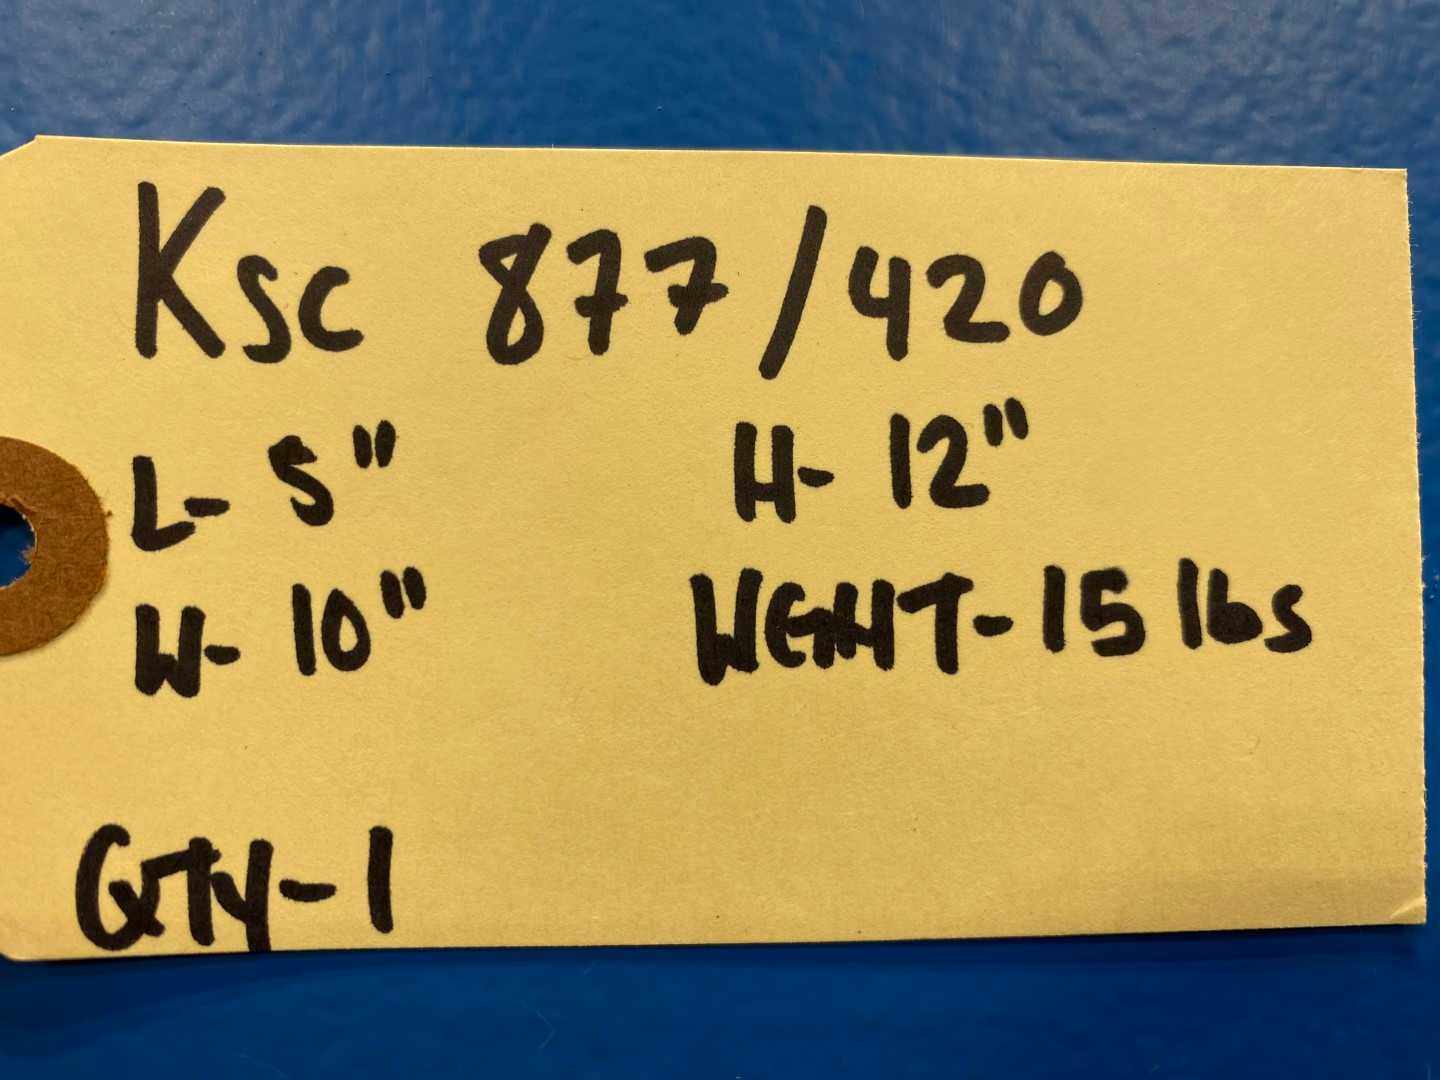 Ksc 877/420
L- 5" H- 12"
W- 10" WGHT-15 lbs
QTY-1